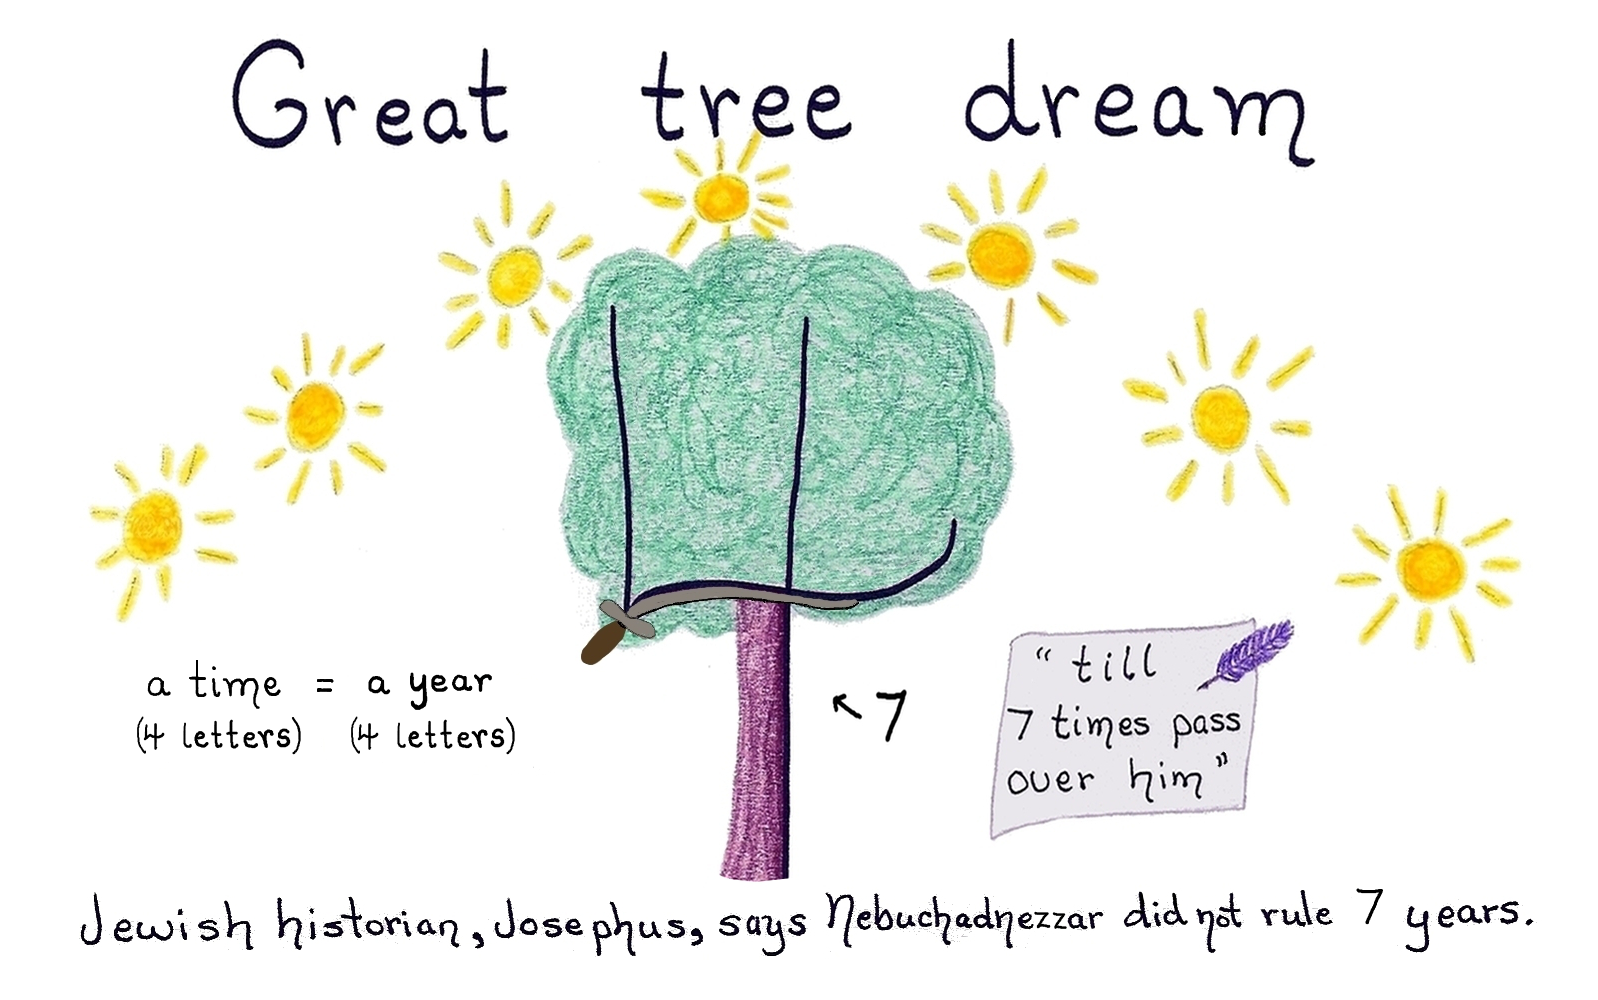 Great tree dream
a time = a year
(4 letters) (4 letters)
7
"till
7 times pass
over him"
Jewish historian, Josephus, says Nebuchadnezzar did not rule 7 years.